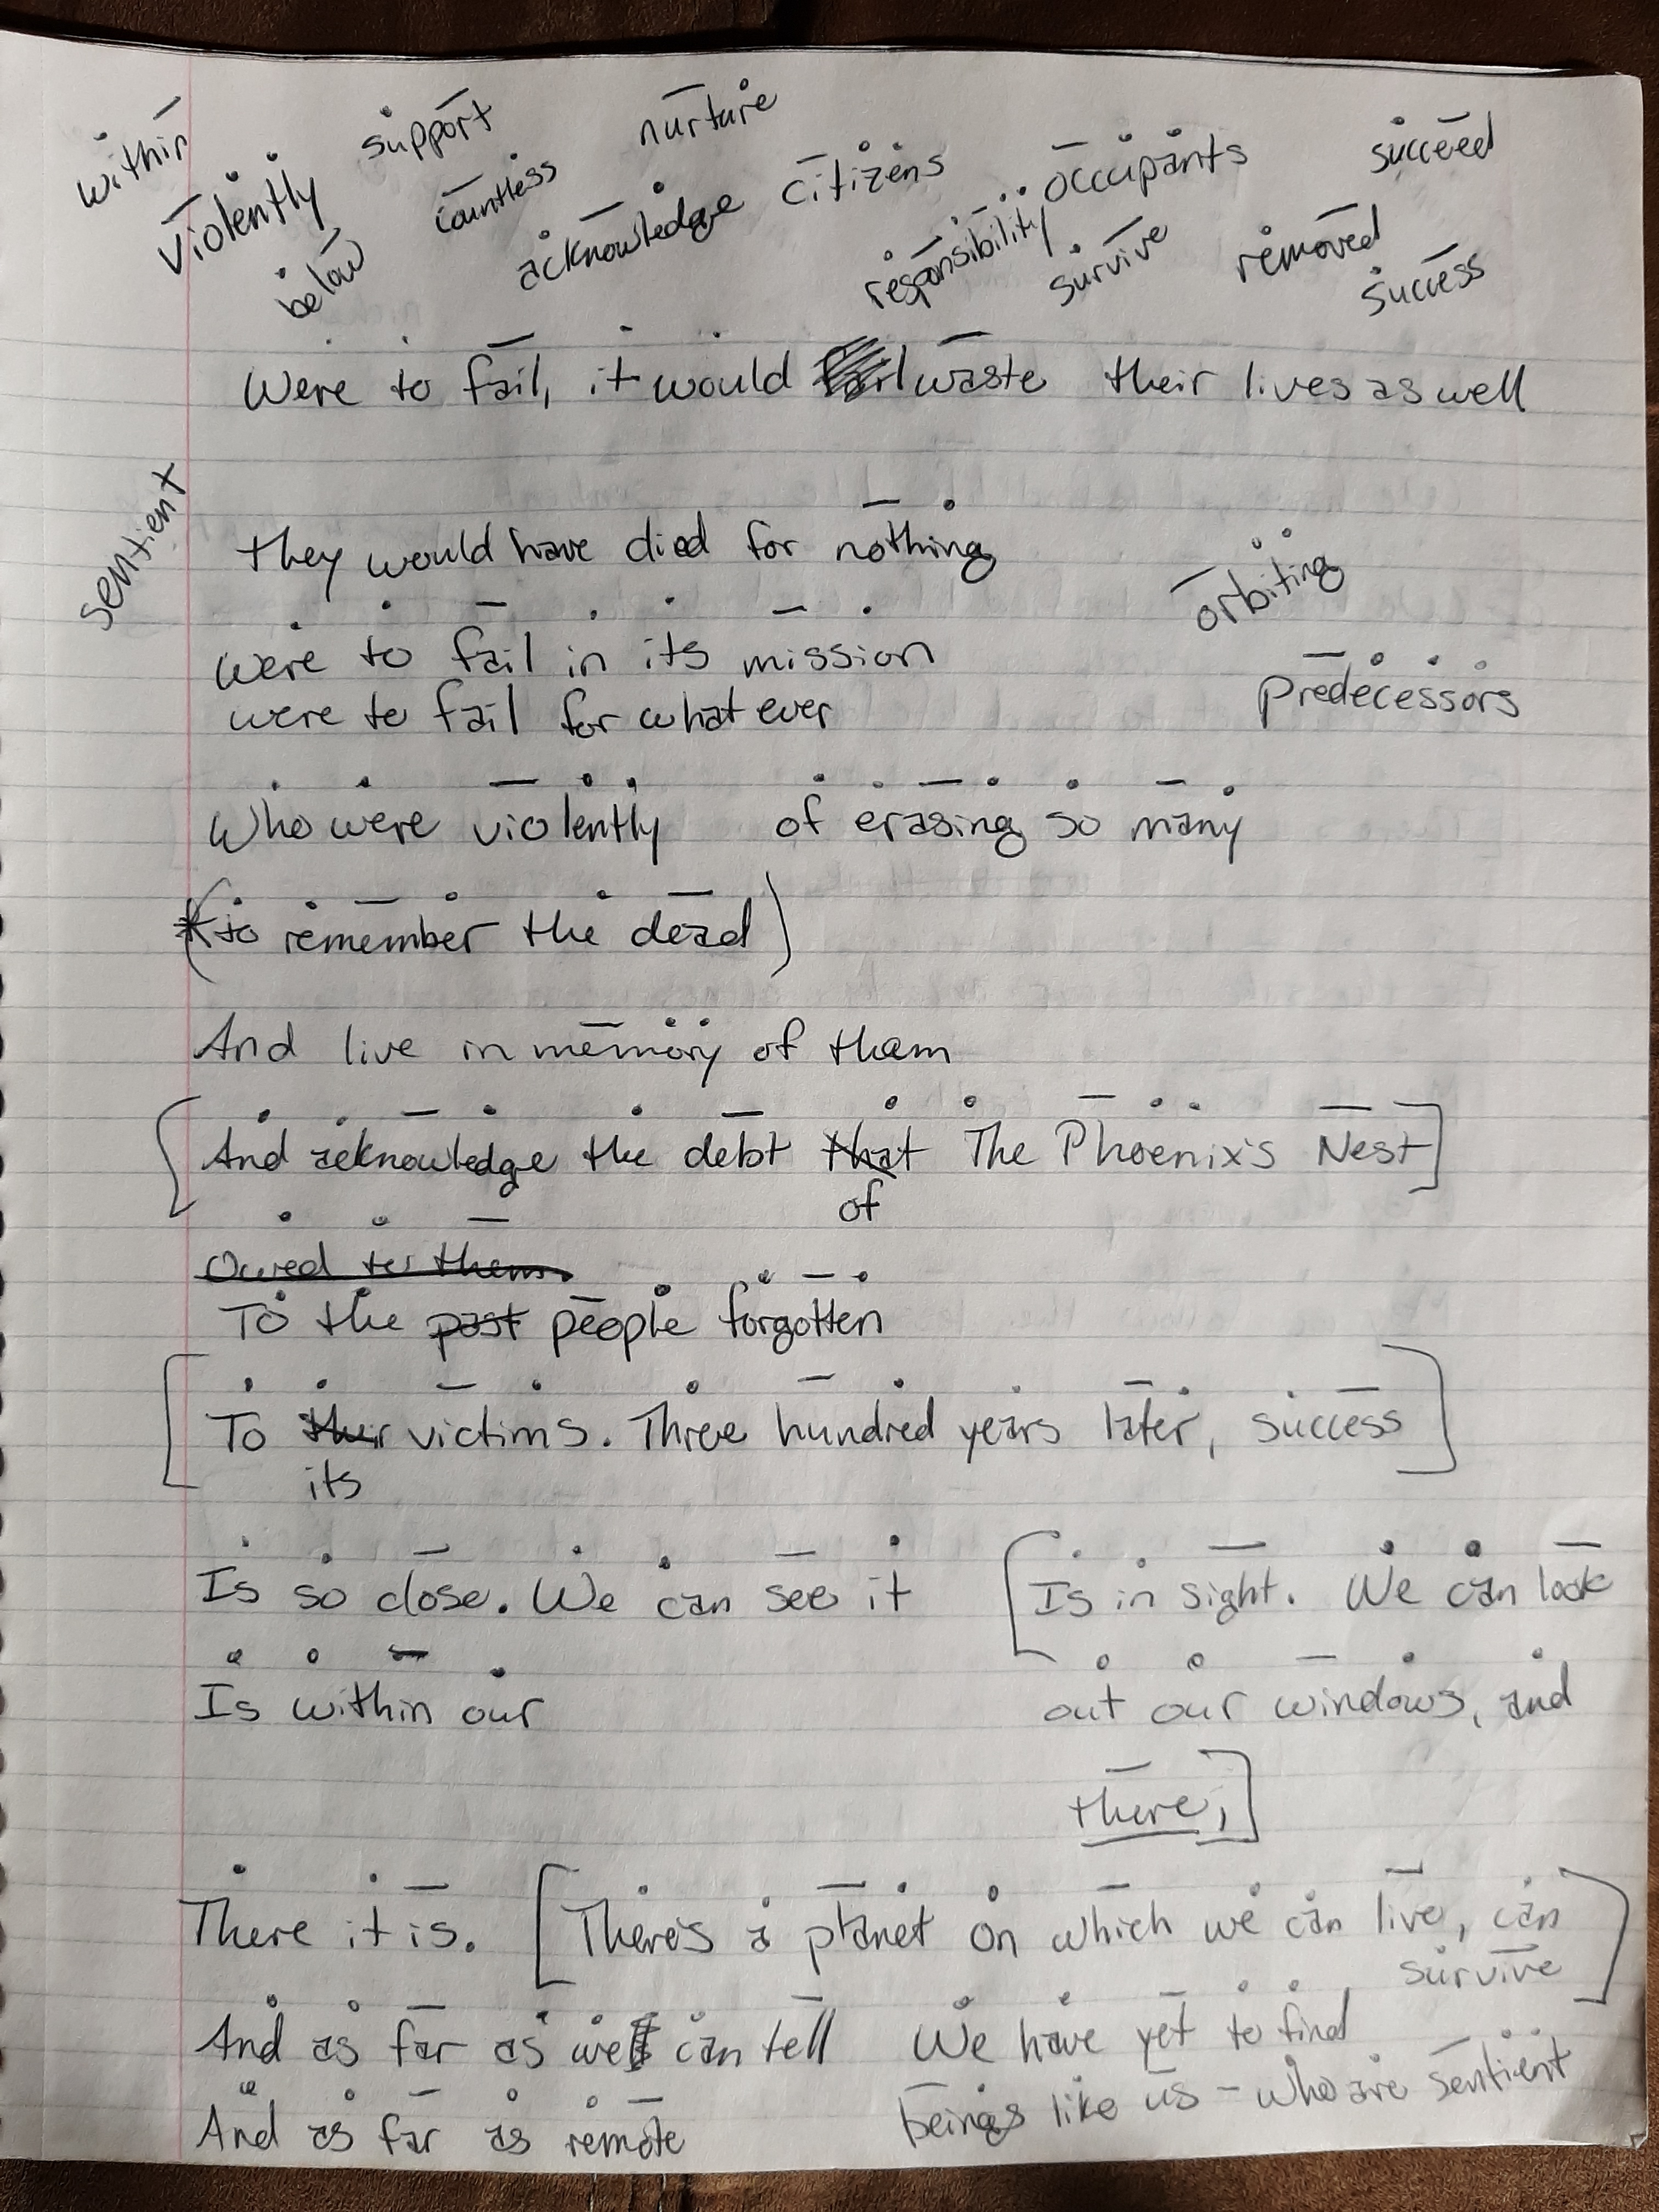 within violently support below countless nurture acknowledge citizens responsibility occupants survive removed succeed success
Were to fail, it would waste their lives as well
sentient
they would have died for nothing
orbiting
were to fail in its mission
predecessors
were to fail for whatever
Who were violently of erasing so many
(to remember the dead)
And live in memory of them
[And acknowledge the debt that The Phoenix's Nest]
of
Owed to them.
To the past people forgotten
[To their victims. Three hundred years later, success]
its
Is so close. We can see it [Is in sight. We can look
Is within our out our windows, and
there,]
There it is. [There's a planet on which we can live, can
survive]
And as far as we can tell We have yet to find
beings like us – who are sentient
And as far as remote